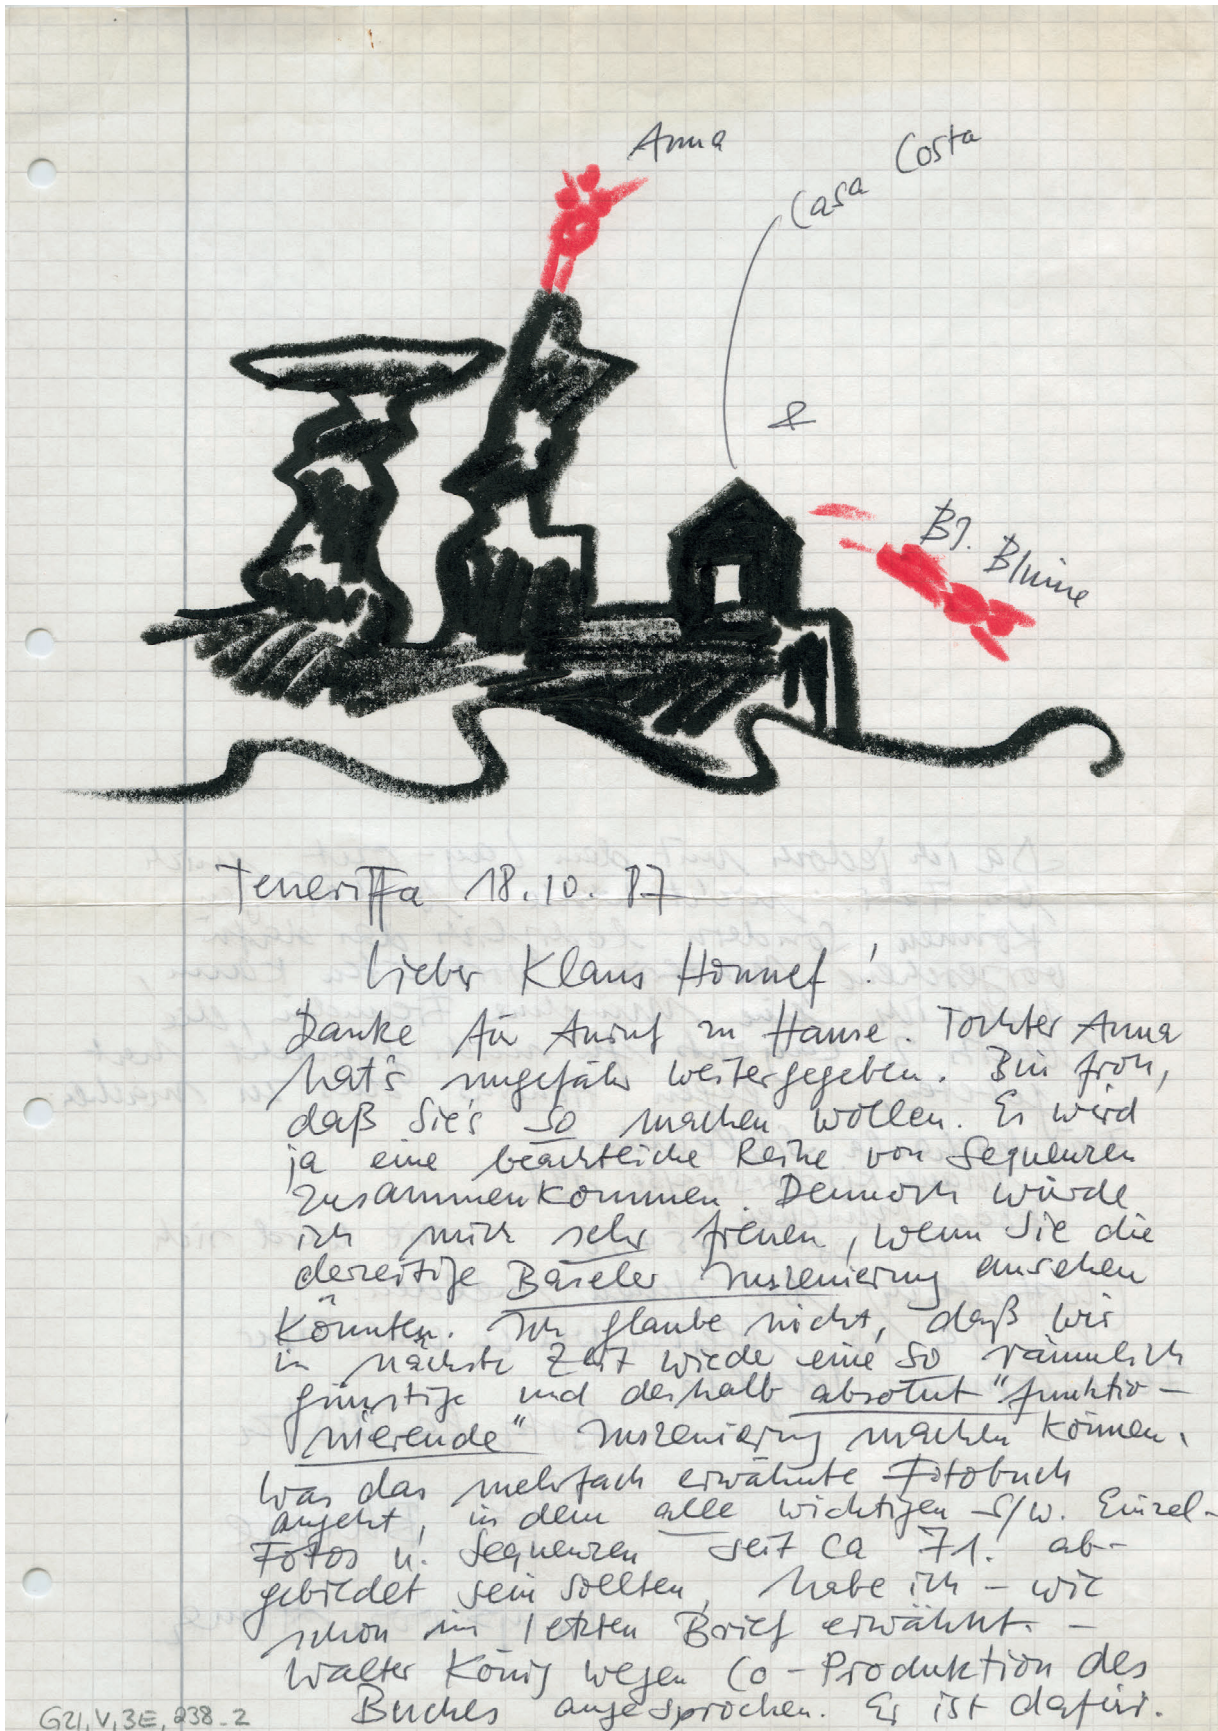 Anna
Casa Costa
&
BJ. Blume
Teneriffa 18.10.87
Lieber Klaus Honnef!
Danke für Anruf zu Hause. Tochter Anna
hat's ungefähr weitergegeben. Bin froh,
daß Sie's so machen wollen. Es wird
ja eine beachtliche Reihe von Sequenzen
zusammenkommen. Dennoch würde
ich mich sehr freuen, wenn Sie die
derzeitige Baseler Inszenierung ansehen
könnten. Ich glaube nicht, daß wir
in nächste Zeit wiede eine so räumlich
günstige und deshalb absolut "funktio-
nierende" Inszenierung machen können.
Was das mehrfach erwähnte Fotobuch
angeht, in dem alle wichtigen S/w. Einzel-
Fotos u. Sequenzen seit ca 71. ab-
gebildet sein sollten, habe ich - wie
schon im letzten Brief erwähnt. -
Walter König wegen Co-Produktion des
Buches angesprochen. Er ist dafür.
G21,V,3E,238_2